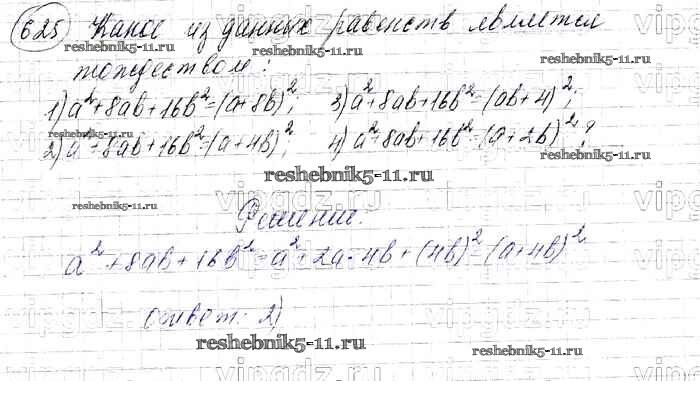 625 Какое из данных равенств является
reshebnik5-11.ru
vipgdz.ru
reshebnik5-11.ru
тождеством:
1) a²+8ab+16b²=(a+8b)²; 3) a²+8ab+16b²=(ab+4)²;
2) a²+8ab+16b²=(a+4b)²; 4) a²+8ab+16b²=(a+2b)²?
reshebnik5-11.ru
reshebnik5-11.ru
reshebnik5-11.ru
vipgdz.ru
Решение.
a²+8ab+16b²=a²+2a·4b+(4b)²=(a+4b)²
vipgdz.ru
ответ: 2)
vipgdz.ru
reshebnik5-11.ru
reshebnik5-11.ru
vipgdz.ru